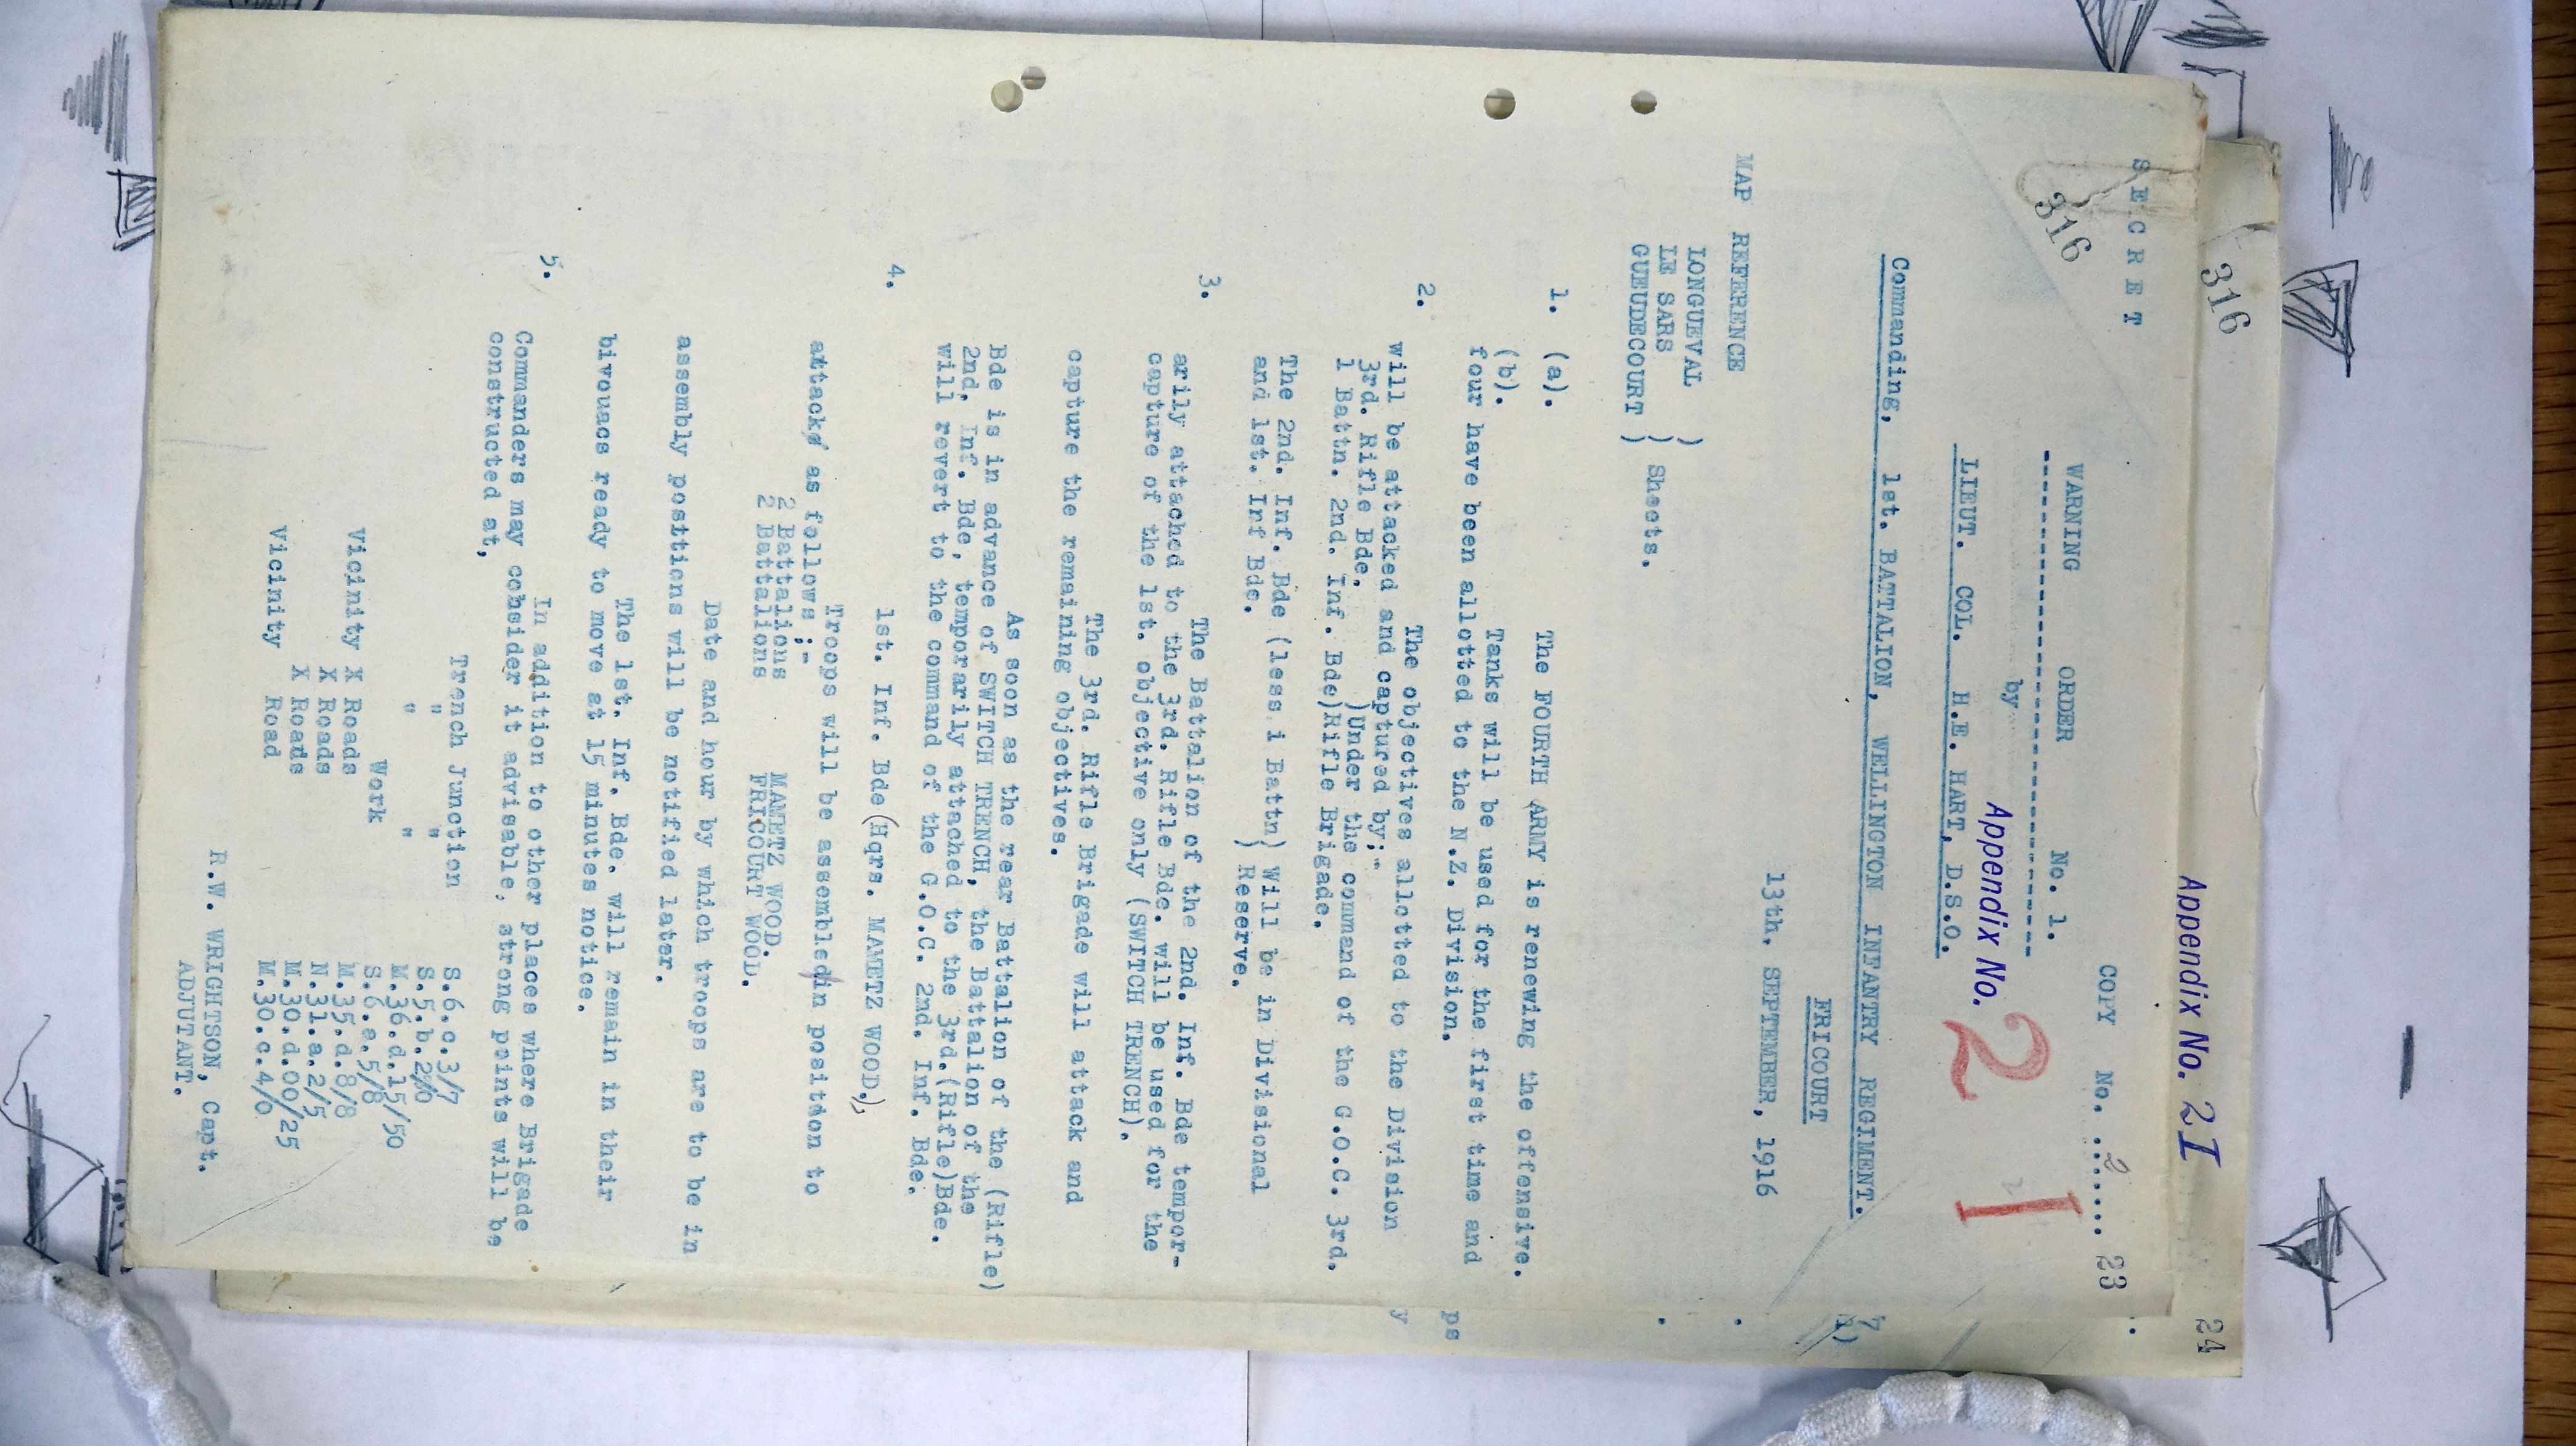 Appendix No. 21
316
24
S E C R E T
COPY No. ..2.....
23
316
WARNING ORDER No. 1.
by
Appendix No. 21
LIEUT. COL. H.E. HART, D.S.O.
Commanding, 1st. BATTALION, WELLINGTON INFANTRY REGIMENT.
FRICOURT
13th. SEPTEMBER, 1916
MAP REFERENCE
LONGUEVAL )
LE SARS ) Sheets.
GUEUDECOURT )
1. (a). The FOURTH ARMY is renewing the offensive.
(b). Tanks will be used for the first time and
four have been allotted to the N.Z. Division.
2. The objectives allotted to the Division
will be attacked and captured by;-
3rd. Rifle Bde. )Under the command of the G.O.C. 3rd.
1 Battn. 2nd. Inf. Bde)Rifle Brigade.
The 2nd. Inf. Bde (less 1 Battn) Will be in Divisional
and 1st. Inf Bde. ) Reserve.
3. The Battalion of the 2nd. Inf. Bde tempor-
arily attached to the 3rd. Rifle Bde. will be used for the
capture of the 1st. objective only (SWITCH TRENCH).
The 3rd. Rifle Brigade will attack and
capture the remaining objectives.
As soon as the rear Battalion of the (Rifle)
Bde is in advance of SWITCH TRENCH, the Battalion of the
2nd. Inf. Bde, temporarily attached to the 3rd.(Rifle)Bde.
will revert to the command of the G.O.C. 2nd. Inf. Bde.
4. 1st. Inf. Bde(Hqrs. MAMETZ WOOD.),
Troops will be assembled in position to
attack as follows ;-
2 Battalions MAMETZ WOOD.
2 Battalions FRICOURT WOOD.
Date and hour by which troops are to be in
assembly positions will be notified later.
The 1st. Inf. Bde. will remain in their
bivouacs ready to move at 15 minutes notice.
5. In addition to other places where Brigade
Commanders may consider it advisable, strong points will be
constructed at,
Trench Junction S.6.c.3/7
" " S.5.b.2/0
" " M.36.d.15/50
Work S.6.a.5/8
Vicinity X Roads M.35.d.8/8
X Roads N.31.a.2/5
X Roads M.30.d.00/25
Vicinity Road M.30.c.4/0
R.W. WRIGHTSON, Capt.
ADJUTANT.